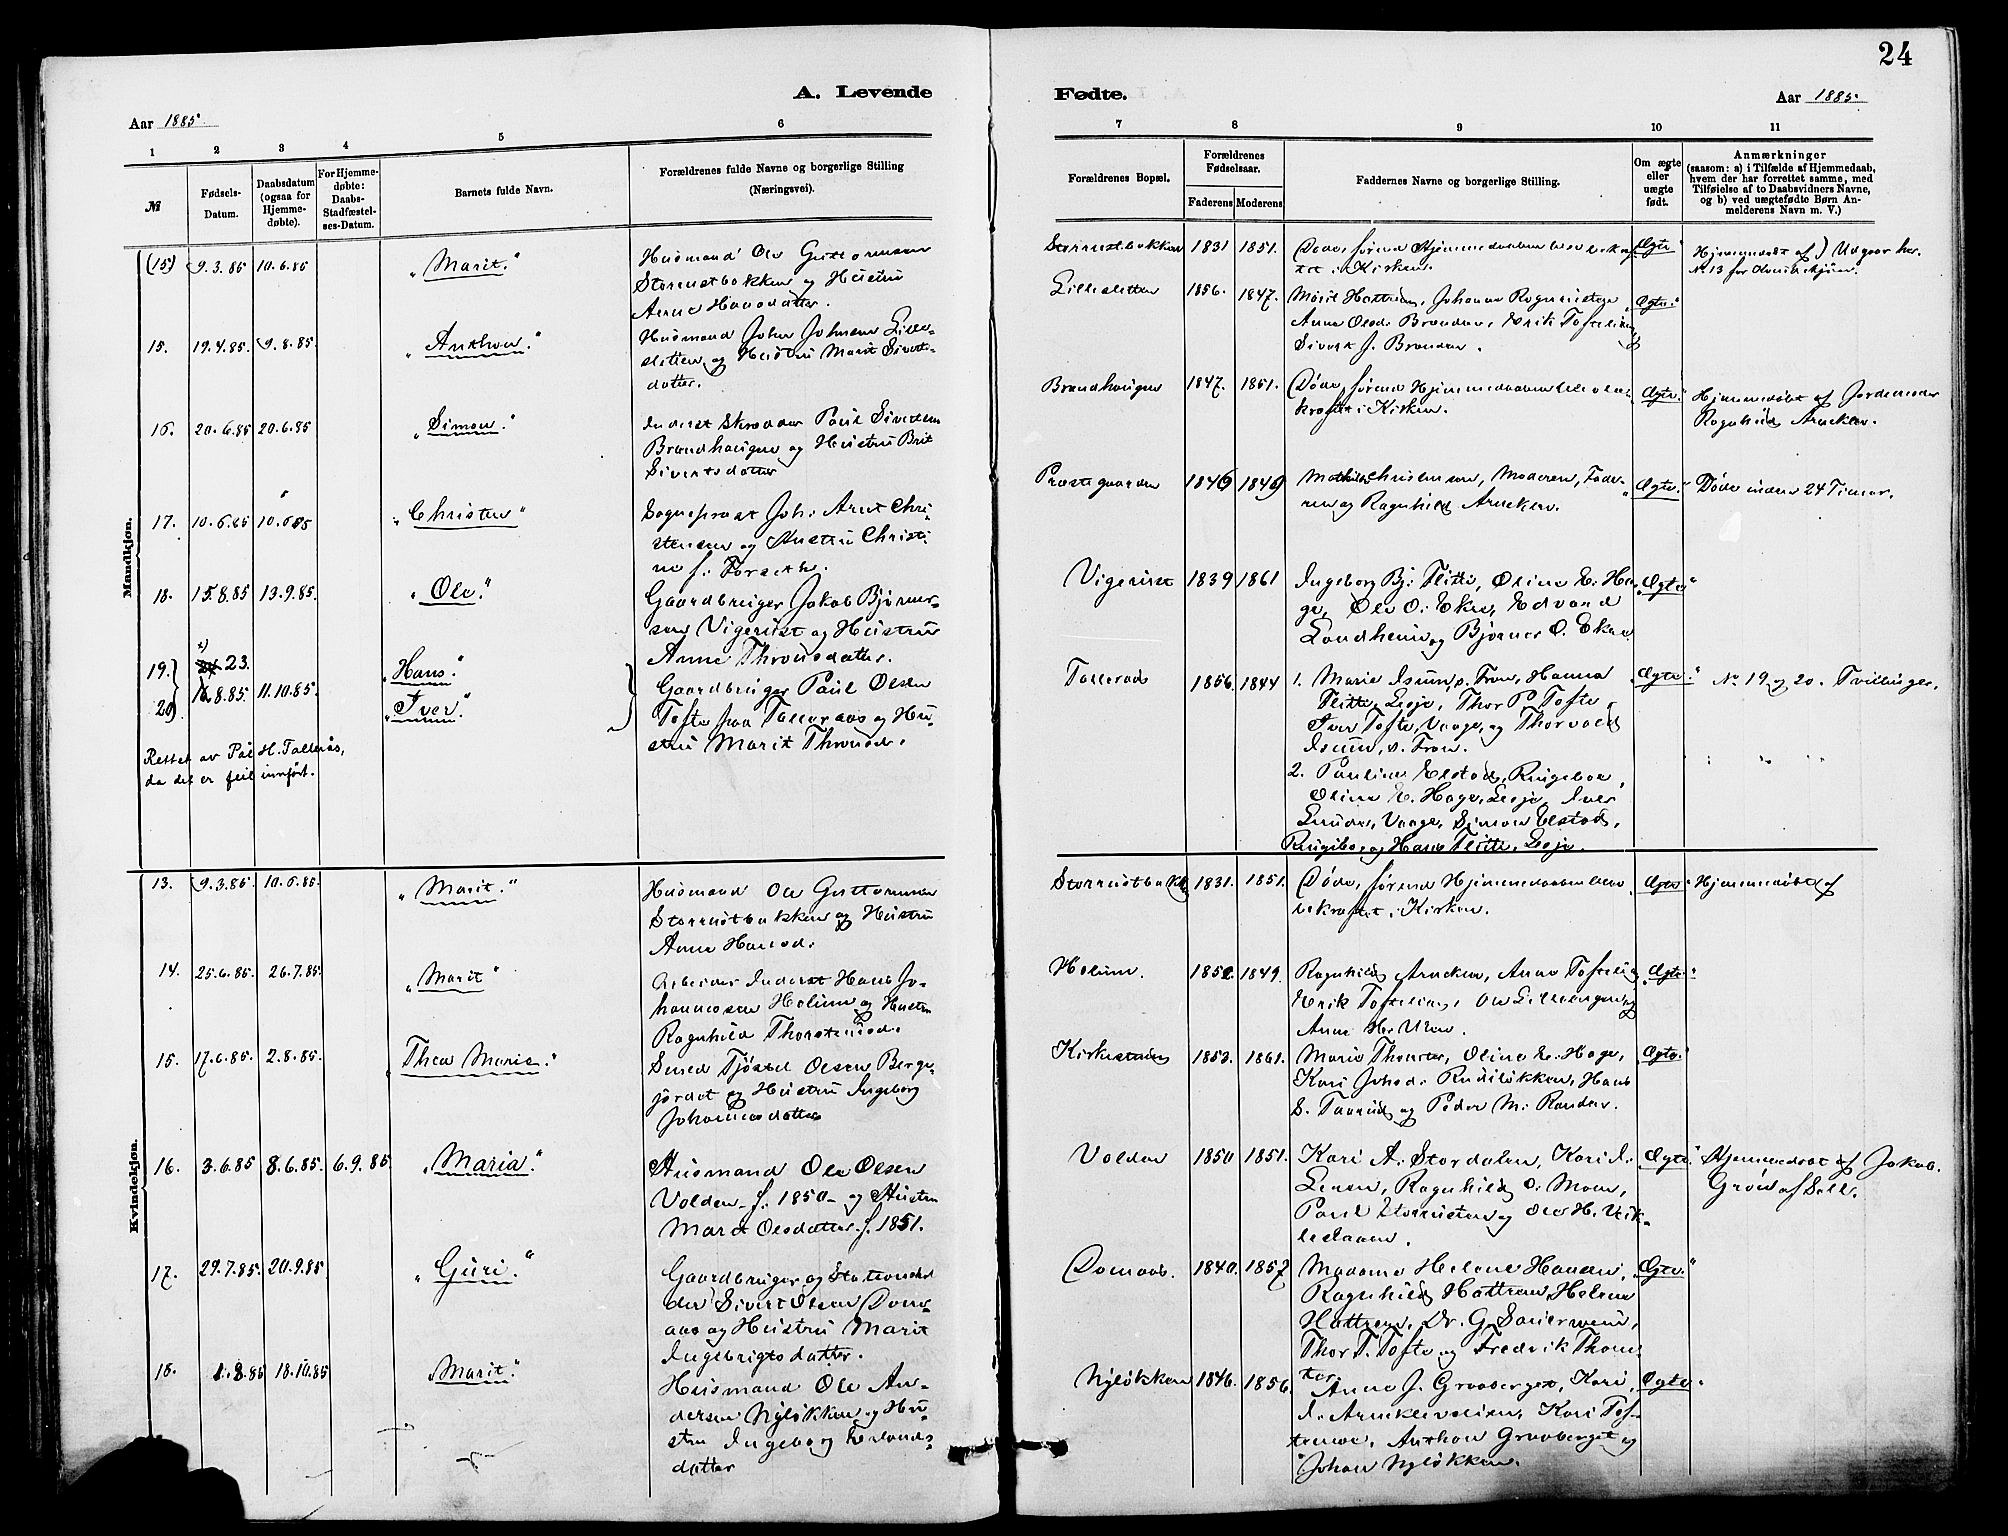 24
A. Levende
Fødte.
Aar 1885.
Aar 1885.
1 2 3 4 5 6
7 8 9 10 11
№
Fødsels-Datum.
Daabsdatum (ogsaa for Hjemmedøbte).
For Hjemmedøbte: Daabs-Stadfæstelses-Datum.
Barnets fulde Navn.
Forældrenes fulde Navne og borgerlige Stilling (Næringsvei).
Forældrenes Bopæl.
Forældrenes Fødselsaar.
Faderens Moderens
Faddernes Navne og borgerlige Stilling.
Om ægte eller uægte født.
Anmærkninger
(saasom: a) i Tilfælde af Hjemmedaab, hvem der har forrettet samme, med Tilføielse af to Daabsvidners Navne, og b) ved uægtefødte Børn Anmelderens Navn m. V.)
Mandkjøn.
(15) 9.3.85 10.6.85 "Marit."
Husmand Ole Guttormsen
Storrustbakken og Hustru
Anne Hansdatter.
Storrustbakken 1831 1851. Døde, førend Hjemmedaaben blev bekræf-
tet i Kirken. Ægte" Hjemmedøbt af ) Udgaar her.
No 13 for Qvindekjøn.
15. 19.4.85. 9.8.85. "Anthon."
Husmand John Johnsen Lille-
sletten og Hustru Marit Siverts-
datter.
Lillesletten 1856. 1847. Marit Hattrem, Johanne Rognrusten
Anne Olsd. Brænden, Erik Toftelien,
Sivert J. Brænden. Ægte."
16. 20.6.85 20.6.85 "Simon."
Inderst Skrædder Paul Sivertsen
Brandhaugen og Hustru Brit
Sivertsdatter
Brandhaugen 1847. 1851. Døde, førend Hjemmedaaben blev be-
kræftet i Kirken. Ægte." Hjemmedøbt af Jordemoder
Ragnhild Arneklev.
17. 10.6.85 10.6.85 "Christen"
Sogneprest Joh. Arnt Chri-
stensen og Hustru Christi-
ne f. Forseth.
Præstegaarden 1846 1849 Mathilde Christensen, Moderen, Fade-
ren og Ragnhild Arneklev. Ægte." Døde inden 24 Timer.
18. 15.8.85 13.9.85. "Ole."
Gaardbruger Jakob Bjørner-
sen Vigerust og Hustru
Anne Thronsdatter.
Vigerust 1839 1861 Ingeborg Bj. Flitte, Oline E. Ha-
ge, Ole O. Ekre, Edvard
Landheim og Bjørner O. Ekre "Ægte"
19. x) 23. "Hans."
20 8.85. 11.10.85. "Iver."
Gaardbruger Paul Olsen
Tofte paa Talleraas og Hu-
stru Marit Thronsd.
Talleraas 1856. 1844 "Ægte." No 19 og 20. Tvillinger.
1. Marie Isum, s. Fron, Hanna
Flitte, Lesje, Thor P. Tofte,
Iver Tofte, Vaage, og Thorvald
Isum, s. Fron.
2. Pauline Elstad, Ringeboe,
Oline E. Hage, Lesje, Iver
Snuden, Vaage, Simon Elstad,
Ringebo, og Hans Flitte, Lesje.
Rettet av Pål H. Tallerås,
da det er feil innført.
Kvindekjøn.
13. 9.3.85. 10.6.85. "Marit."
Husmand Ole Guttormsen
Storrustbakken og Hustru
Anne Hansd.
Storrustbakk 1831. 1851. Døde, førend Hjemmedaaben blev
bekræftet i Kirken. Ægte" Hjemmedøbt af
14. 25.6.85. 26.7.85. "Marit"
Arbeider Inderst Hans Jo-
hannesen Holum og Hustru
Ragnhild Thorstensd.
Holum. 1852 1849. Ragnhild Arneklev, Anne Toftelien
Erik Toftelien, Ole Lillehaugen og
Anne H. Uren. Ægte"
15. 17.6.85 2.8.85. "Thea Marie."
Smed Tjøstel Olsen Berge-
jordet og Hustru Ingeborg
Johannesdatter
Kirkestuen 1853. 1861. Marie Thomter, Oline E. Hage,
Kari Johsd. Rudiløkken, Hans
S. Taarud og Peder M. Randen. Ægte."
16. 3.6.85 8.6.85. 6.9.85. "Maria."
Husmand Ole Olsen
Volden f. 1850 og Hustru
Marit Olsdatter f. 1851.
Volden 1850 1851. Kari A. Stordalen, Kari I.
Lenen, Ragnhild O. Moen,
Paul Storrusten og Ole H. Vek-
leslaaen. Ægte." Hjemmedøbt af Jakob
Grønaf Sell.
17. 29.7.85. 20.9.85. "Guri."
Gaardbruger og Stationshol-
der Sivert Olsen Dom-
aas og Hustru Marit
Ingebrigtsdatter.
Domaas. 1840. 1857 Madame Helene Hansen,
Ragnhild Hattrem, Helene
Hattrem, Dr. G. Sauerwein,
Thor T. Tofte og Fredrik Thom-
ter. Ægte."
18. 1.8.85 18.10.85 "Marit."
Husmand Ole An-
dersen Nyløkken og Hu-
stru Ingeborg Erlands-
datter
Nyløkken 1846. 1856. Anne J. Graaberget, Kari
I. Arneklevelien, Kari Tof-
temoe, Anthon Graaberget og
Johan Nyløkken. Ægte"